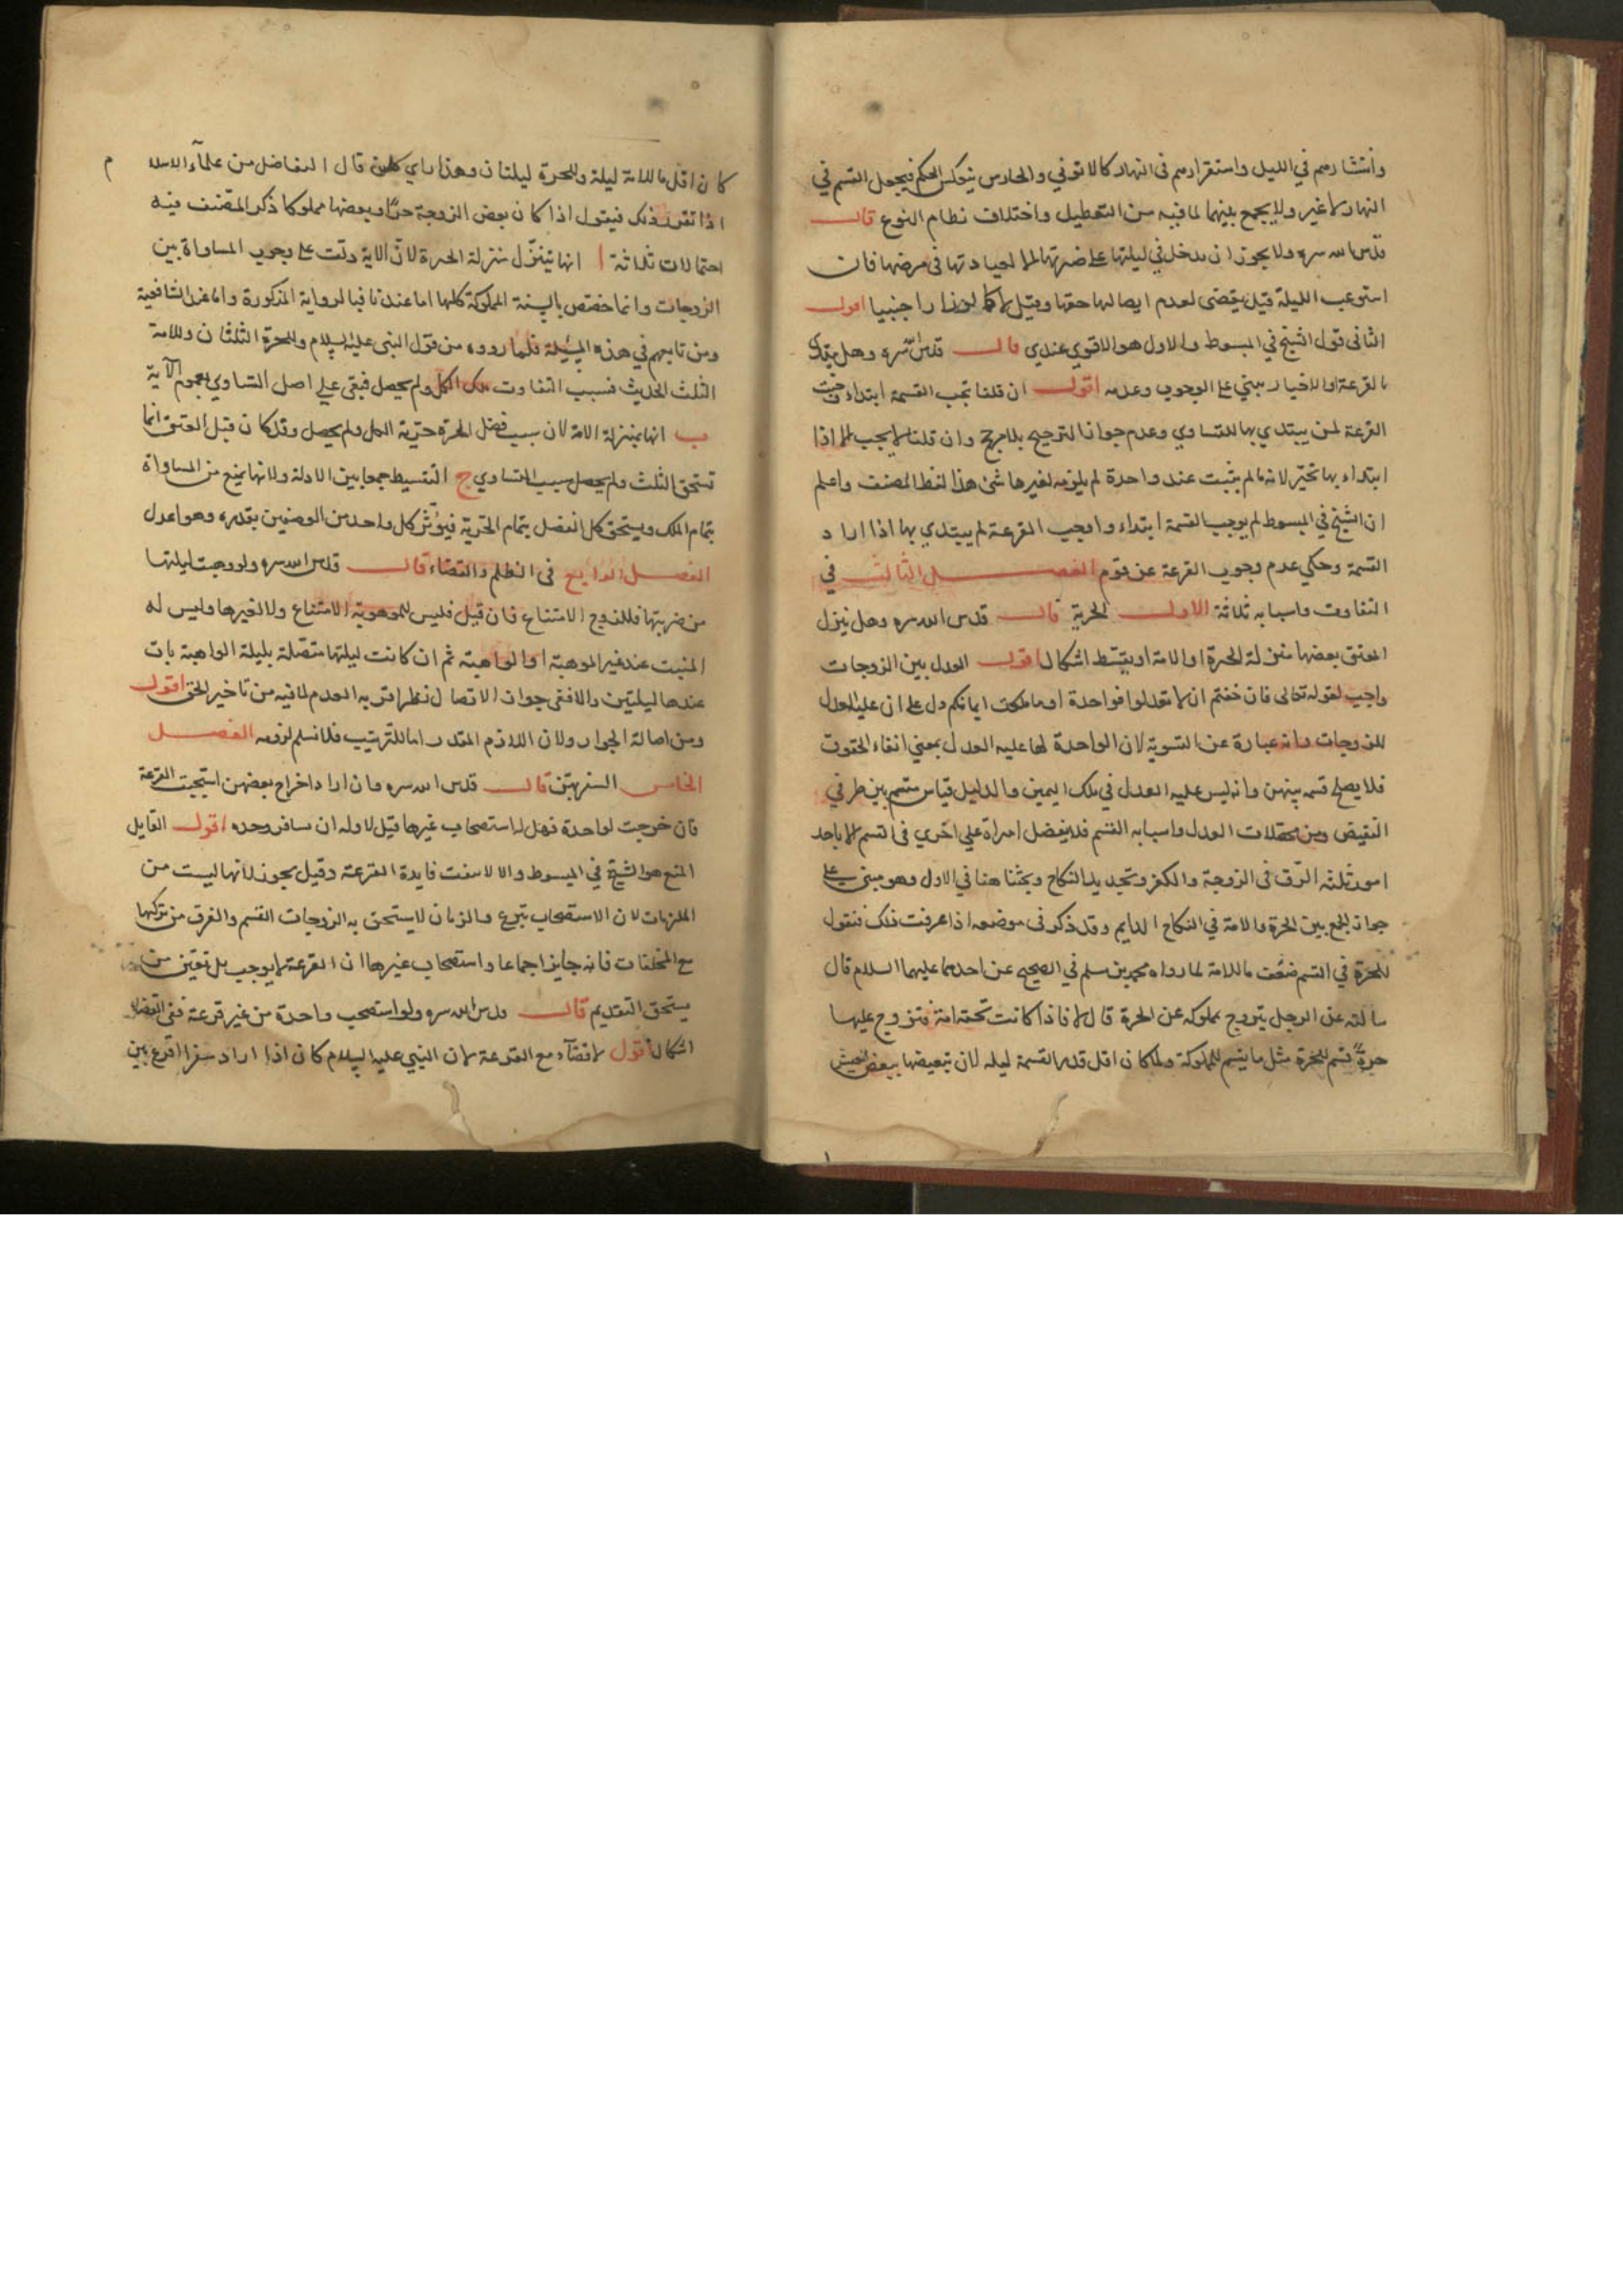 وانتشارهم في الليل واستقرارهم في النهار كالاتوني والحارس ينعكس الحكم فيجعل القسم في
النهار لا غير ولا يجمع بينهما لما فيه من التعطيل واختلاف نظام النوع قال
قدس الله سره ولا يجوز ان يدخل في ليلتها على ضرتها الا لعيادتها في مرضها فان
استوعب الليلة قيل يقضى لعدم ايصالها حقها وقيل لا كما لو زار اجنبيا اقول
الثاني قول الشيخ في المبسوط والاول هو الاقوي عندي قال قدس سره وهل يبتدي
بالقرعة او الاختيار يبني على الوجوب وعدمه اقول ان قلنا تجب القسمة ابتداء وجبت
القرعة لمن يبتدي بها للتساوي وعدم جواز الترجيح بلا مرجح وان قلنا لا يجب الا اذا
ابتداء بها تخير لانه ما لم يثبت عند واحدة لم يلزمه لغيرها شئ هذا لفظ المصنف واعلم
ان الشيخ في المبسوط لم يوجب القسمة ابتداء واوجب القرعة لم يبتدي بها اذا اراد
القسمة وحكي عدم وجوب القرعة عن قوم الفصل الثالث في
التفاوت واسبابه ثلاثة الاول الحرية قال قدس الله سره وهل ينزل
المعتق بعضها منزلة الحرة او الامة او يتقسط اشكال اقول العدل بين الزوجات
واجب لقوله تعالى فان خفتم ان لا تعدلوا فواحدة او ما ملكت ايمانكم دل على ان عليه العدل
للزوجات وانه عبارة عن التسوية لان الواحدة لها عليه العدل بمعني ايفاء الحقوق
فلا يصلح قسمه بينهن وانه ليس عليه العدل في ملك اليمين والدليل قياس منقسم بين طرفي
النقيض ومن متعلقات العدل واسبابه القسم فلا يفضل امراة على اخري في القسم الا باحد
امور ثلثه الرق في الزوجة والكفر وتجديد النكاح وبحثنا هنا في الاول وهو مبني على
جواز الجمع بين الحرة والامة في النكاح الدايم وقد ذكر في موضعه اذا عرفت ذلك فنقول
للحرة في القسم ضعف ما للامة لما رواه محمد بن مسلم في الصحيح عن احدهما عليهما السلام قال
سالته عن الرجل يتزوج مملوكه عن الحرة قال لا فاذا كانت تحته امة فتزوج عليها
حرة قسم للحرة مثل ما يقسم للمملوكة ولما كان اقل قدر القسمة ليله لان تبعيضها يبعض العيش
كان اقل ما للامة ليلة وللحرة ليلتان وهذا راي كل من قال التفاضل من علمآء الاسلام
اذا تقرر ذلك فنقول اذا كان بعض الزوجة حرا وبعضها مملوكا ذكر المصنف فيه
احتمالات ثلاثة ا انها تتنزل منزلة الحرة لان الاية دلت على وجوب المساواة بين
الزوجات وانما خصص بالسنة المملوكة كلها اما عندنا فبالرواية المذكورة واما عن الشافعية
ومن تابعهم في هذه المسئلة فلما رووه من قول النبي عليه السلام وللحرة الثلثان وللامة
الثلث الحديث فسبب التفاوت ملك الكل ولم يحصل فبقي علي اصل التساوي بعموم الآية
ب انها بمنزلة الامة لان سبب فضل الحرة حرية الكل ولم يحصل وقد كان قبل العتق انما
تستحق الثلث ولم يحصل سبب التساوي ج التقسيط جمعا بين الادلة ولانها يمنع من المساواة
بتمام الملك ويستحق كل الفضل بتمام الحرية فيؤثر كل واحد من الوصفين بقدره وهو اعدل
الفصل الرابع في الظلم والقضاء قال قدس الله سره ولو وهبت ليلتها
من ضرتها فللزوج الامتناع فان قبل فليس للموهوبة الامتناع ولا لغيرها وليس له
المبيت عند غير الموهبة او الواهبة ثم ان كانت ليلتها متصلة بليلة الواهبة بات
عندها ليلتين والا ففي جواز الاتصال نظر اقربه العدم لما فيه من تاخير الحق اقول
ومن اصالة الجواز ولان اللازم المقدر اما للترتيب فلا نسلم لزومه الفصل
الخامس السفر بهن قال قدس الله سره وان اراد اخراج بعضهن استحبت القرعة
فان خرجت لواحدة فهل له استصحاب غيرها قيل لا وله ان يسافر وحده اقول القايل
المنع هو الشيخ في المبسوط والا لانتفت فايدة القرعة وقيل يجوز لانها ليست من
الملزمات لان الاستصحاب تبرع والزمان لا يستحق به الزوجات القسم والفرق من تركها
مع المخلفات فانه جايز اجماعا واستصحاب غيرها ان القرعة لا يوجب بل تعين من
يستحق التقديم قال قدس الله سره ولو استصحب واحدة من غير قرعة ففي القضاء
اشكال اقول لا قضآء مع القرعة لان النبي عليه السلام كان اذا اراد سفرا اقرع بين